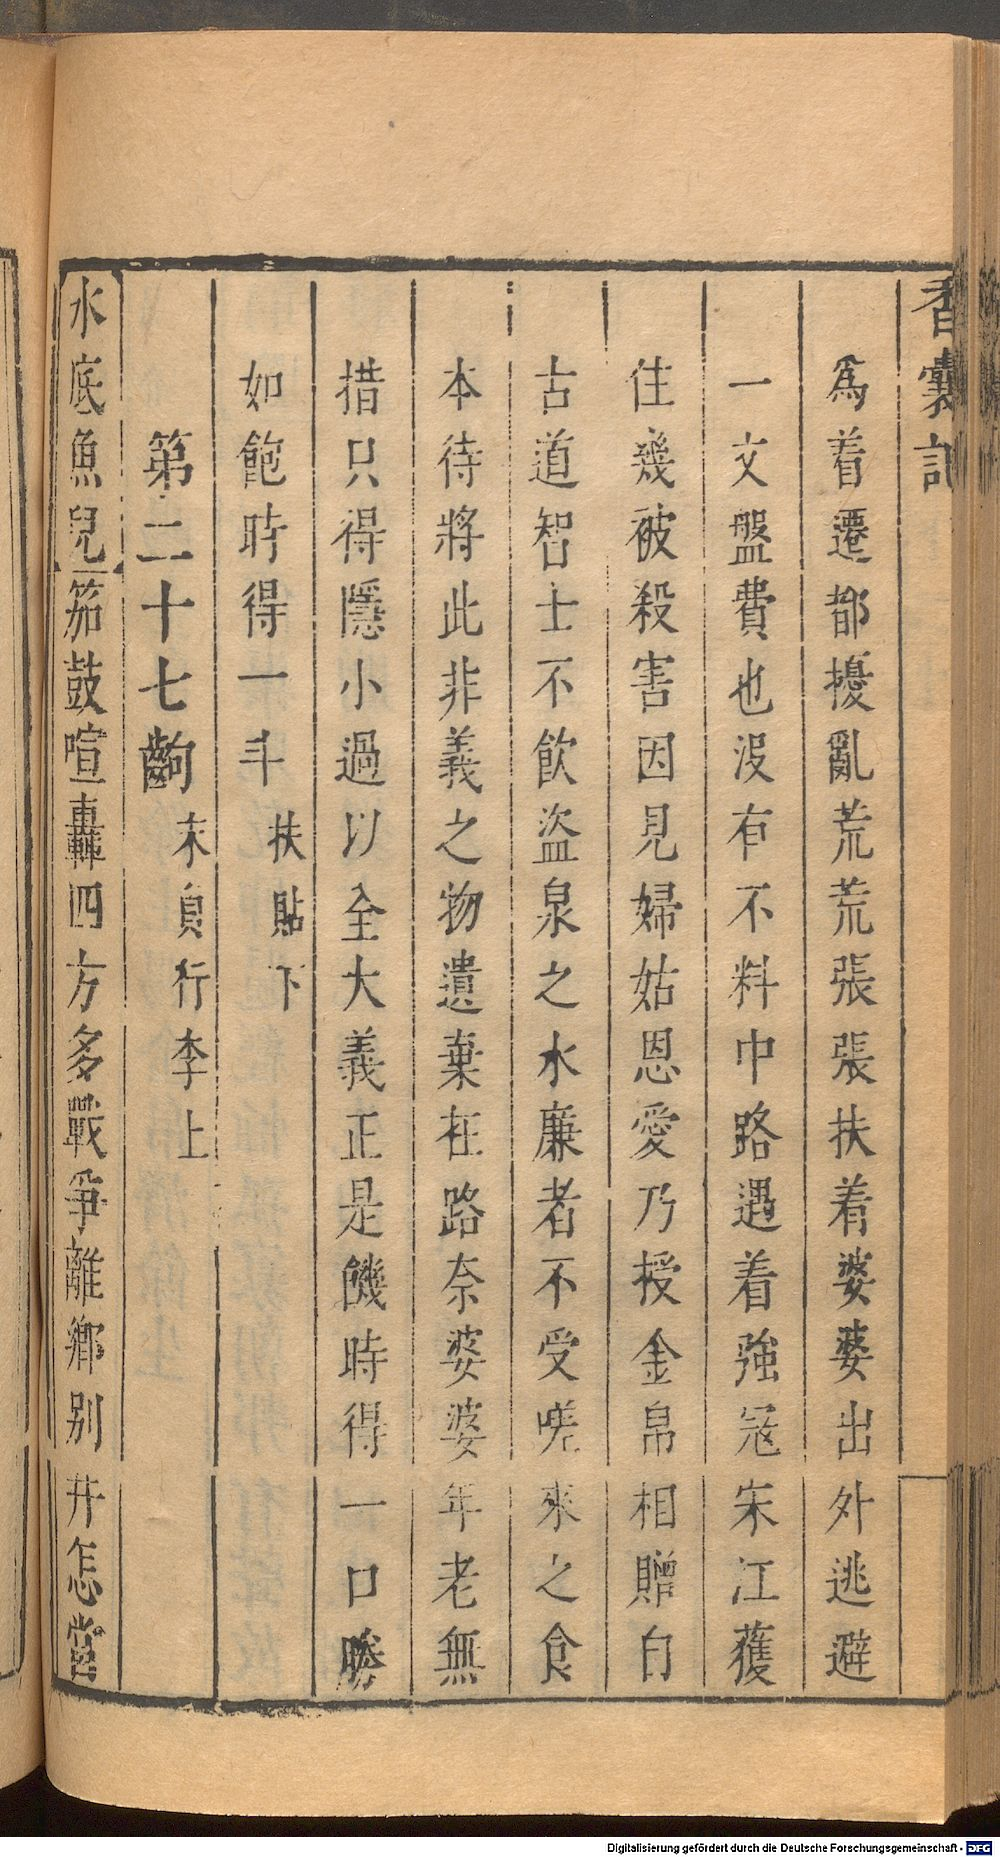 香囊記
爲着遷都擾亂荒荒張張扶着婆婆出外逃避
一文盤費也没有不料中路遇着強冦宋江獲
住幾被殺害因見婦姑恩愛乃授金帛相贈自
古道智士不飲盜泉之水廉者不受嗟來之食
本待將此非義之物遺棄在路奈婆婆年老無
措只得隱小過以全大義正是饑時得一口勝
如飽時得一斗扶貼下
第二十七齣末負行李上
水底魚兒笳鼓喧轟四方多戰爭離鄉别井怎當
Digitalisierung gefördert durch die Deutsche Forschungsgemeinschaft - DFG